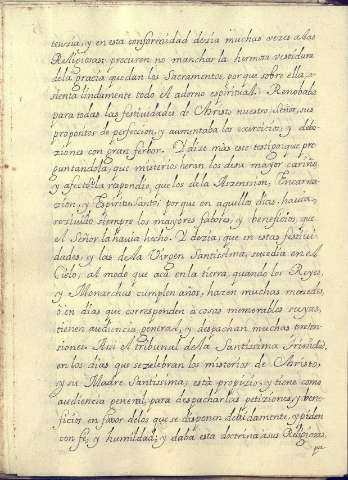 tenzia, y en esta conformidad dezia muchas vezes a las
Religiosas: procuren no manchar la hermosa vestidura
de la gracia que dan los Sacramentos, porque sobre ella, a-
sienta lindamente todo el adorno espiritual. Renobaba
para todas las festiuidades de Christo nuestro Señor, sus
propositos de perfeccion, y aumentaba los exercicios, y debo-
ziones con gran ferbor. Y dize mas este testigo que pre-
guntandola, que misterios heran los de su mayor cariño
y afecto? la respondio, que los de la Aszension, Encarna-
zion, y Espiritu Santo; porque en aquellos dias, hauia
reziuido siempre los mayores fabores, y beneficios, que
el Señor la hauia hecho. Y dezia, que en estas festiui-
dades, y las de la Virgen Santissima, suzedia en el
Cielo, al modo que aca en la tierra, quando los Reyes,
y Monarchas cumplen años, hazen muchas mercedes,
o en dias que corresponden a cosas memorables suyas,
tienen audiencia general, y despachan muchas preten-
siones. Assi el tribunal de la Santissima Trinidad,
en los dias que se zelebran los misterios de Christo,
y su Madre Santissima, está propizio, y tiene como
audiencia general para despachar las petiziones, y bene-
ficios en fabor de los que se disponen debidamente, y piden
con fe, y humildad; y daba esta doctrina a sus Religiosas,
pa